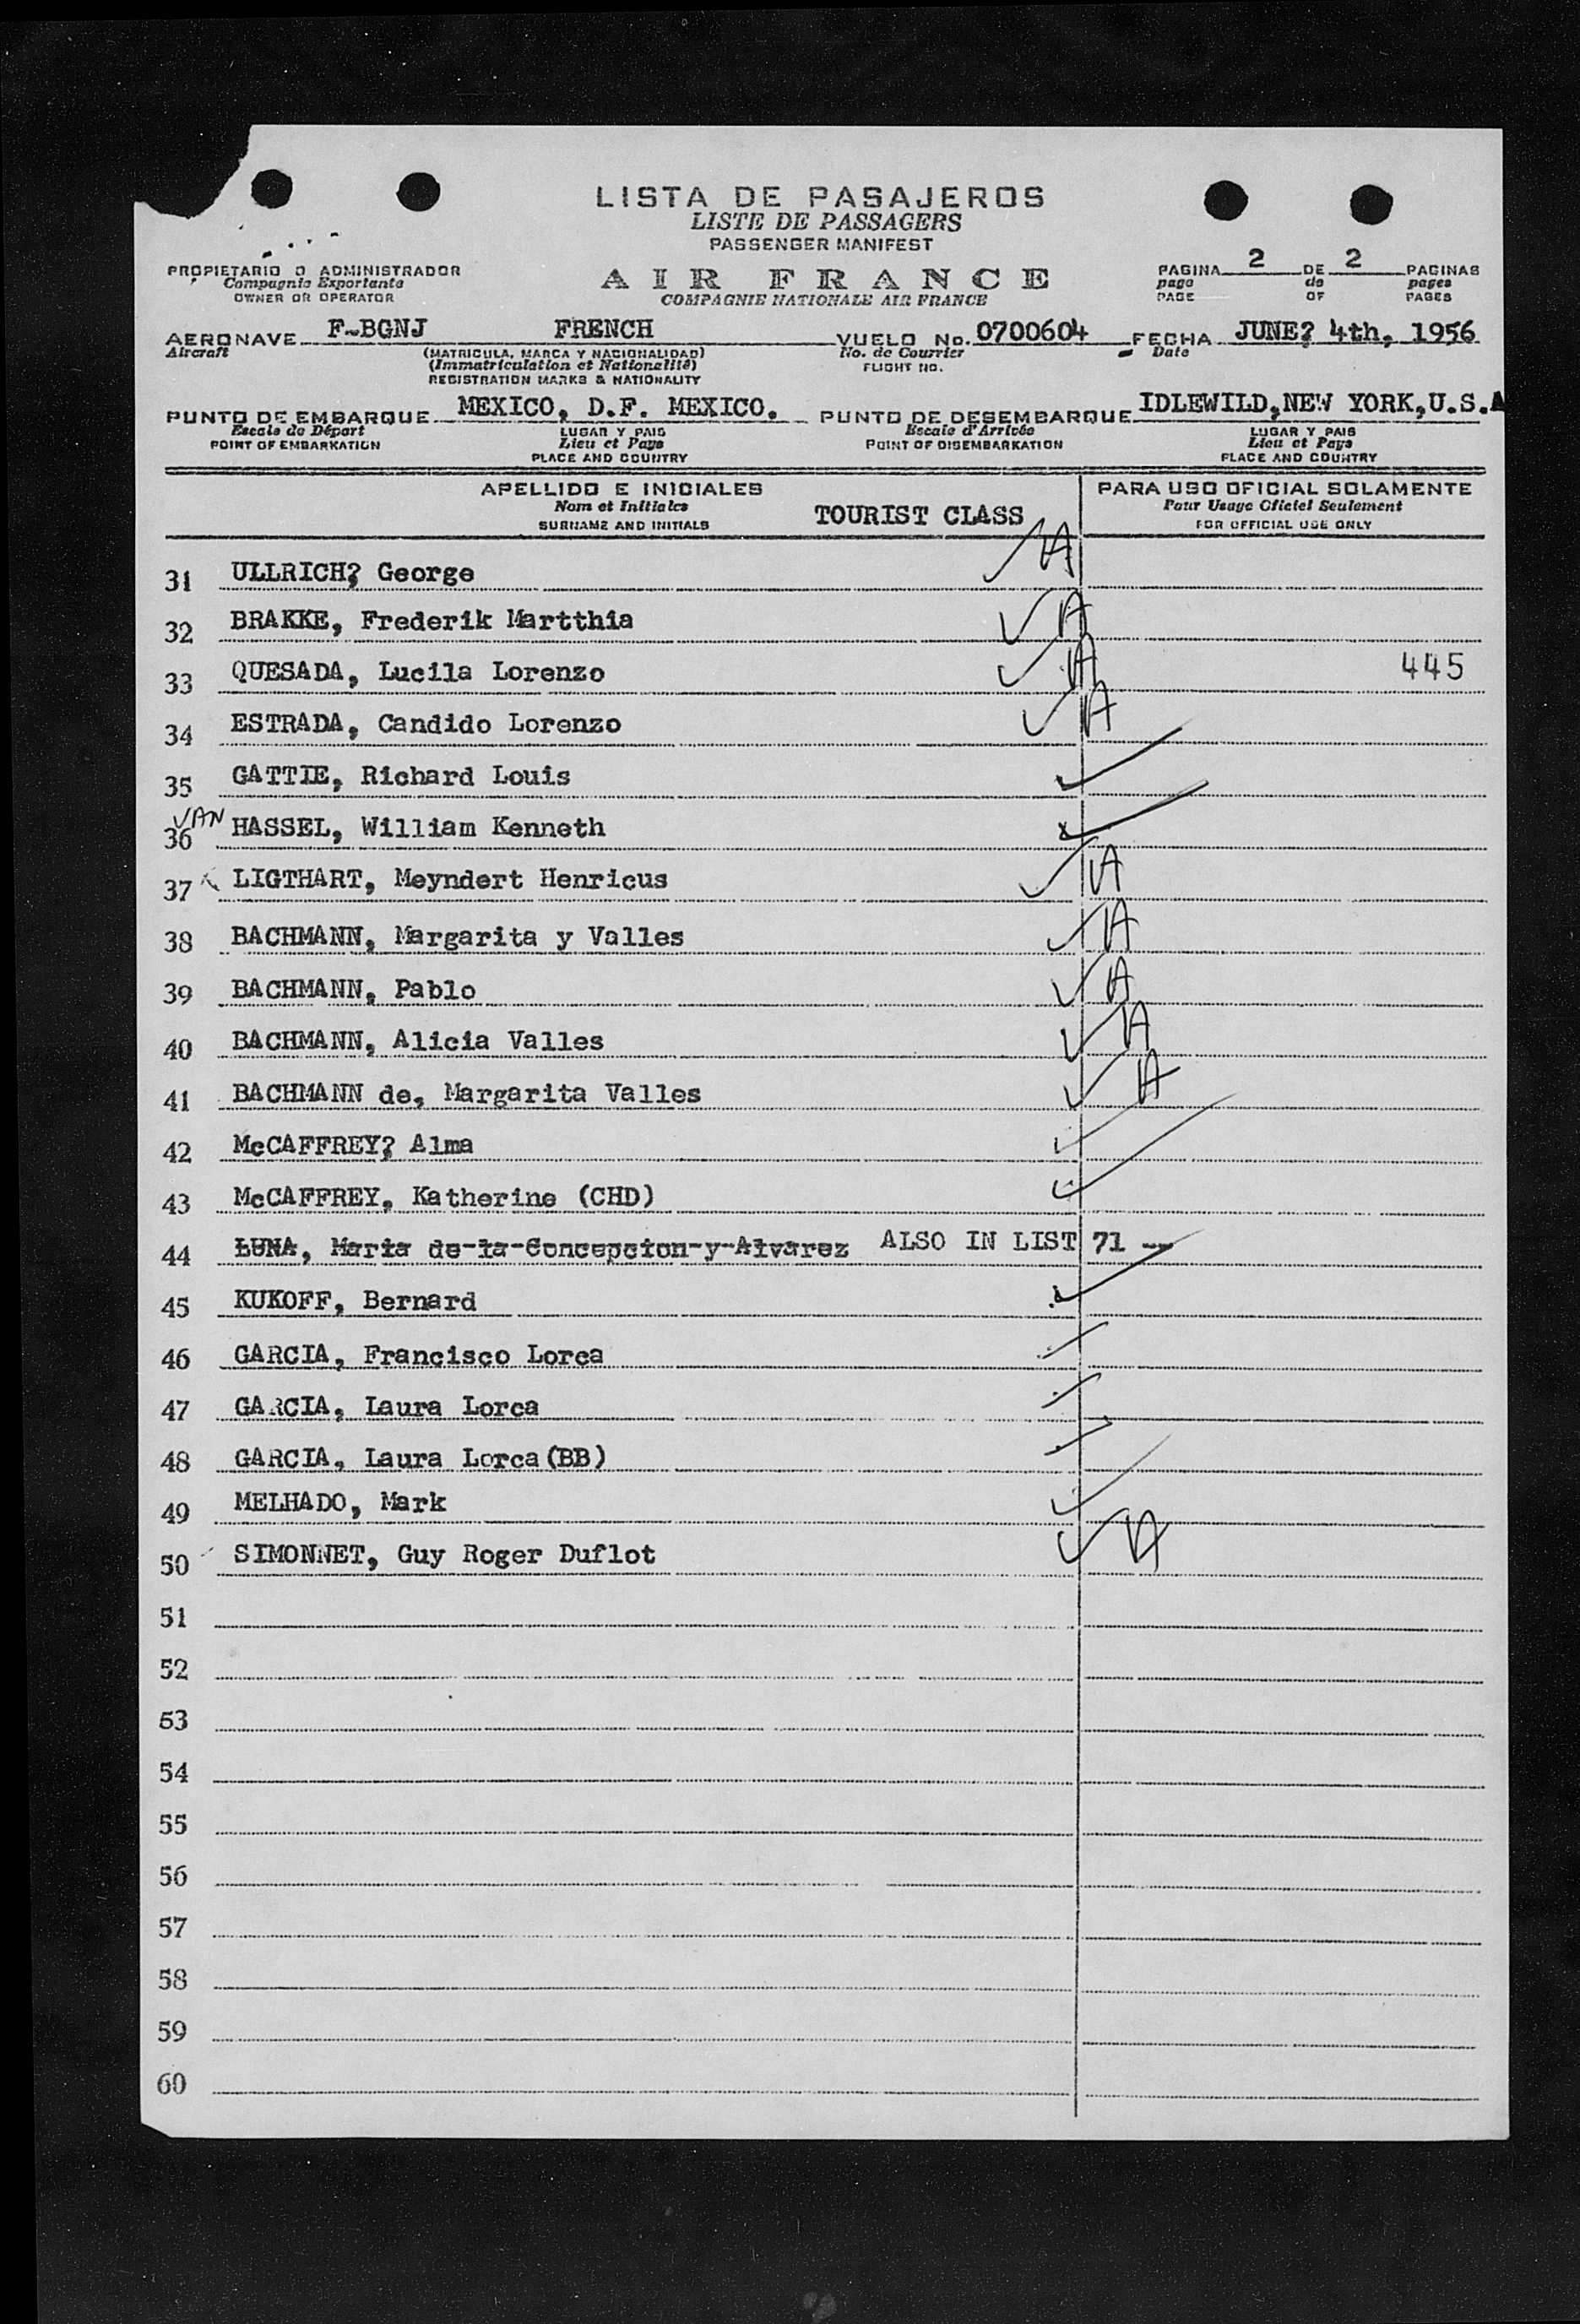 LISTA DE PASAJEROS
LISTE DE PASSAGERS
PASSENGER MANIFEST
PROPIETARIO O ADMINISTRADOR
Compagnie Exportante
OWNER OR OPERATOR
AIR FRANCE
COMPAGNIE NATIONALE AIR FRANCE
PAGINA 2 DE 2 PAGINAS
page de pages
PAGE OF PAGES
AERONAVE F-BGNJ FRENCH VUELO No. 0700604 FECHA JUNE? 4th, 1956
Aircraft (MATRICULA, MARCA Y NACIONALIDAD) No. de Courrier Date
(Immatriculation et Nationalité) FLIGHT NO.
REGISTRATION MARKS & NATIONALITY
PUNTO DE EMBARQUE MEXICO, D.F. MEXICO. PUNTO DE DESEMBARQUE IDLEWILD,NEW YORK,U.S.A
Escale de Départ LUGAR Y PAIS Escale d'Arrivée LUGAR Y PAIS
POINT OF EMBARKATION Lieu et Pays POINT OF DISEMBARKATION Lieu et Pays
PLACE AND COUNTRY PLACE AND COUNTRY
APELLIDO E INICIALES PARA USO OFICIAL SOLAMENTE
Nom et Initiales TOURIST CLASS Pour Usage Officiel Seulement
SURNAME AND INITIALS FOR OFFICIAL USE ONLY
31 ULLRICH? George A
32 BRAKKE, Frederik Martthia A
33 QUESADA, Lucila Lorenzo A 445
34 ESTRADA, Candido Lorenzo A
35 GATTIE, Richard Louis
36 VAN HASSEL, William Kenneth
37 LIGTHART, Meyndert Henricus A
38 BACHMANN, Margarita y Valles A
39 BACHMANN, Pablo A
40 BACHMANN, Alicia Valles A
41 BACHMANN de, Margarita Valles A
42 McCAFFREY? Alma
43 McCAFFREY, Katherine (CHD)
44 LUNA, Maria de-la-Concepcion-y-Alvarez ALSO IN LIST 71 --
45 KUKOFF, Bernard
46 GARCIA, Francisco Lorca
47 GARCIA, Laura Lorca
48 GARCIA, Laura Lorca(BB)
49 MELHADO, Mark
50 SIMONNET, Guy Roger Duflot A
51
52
53
54
55
56
57
58
59
60